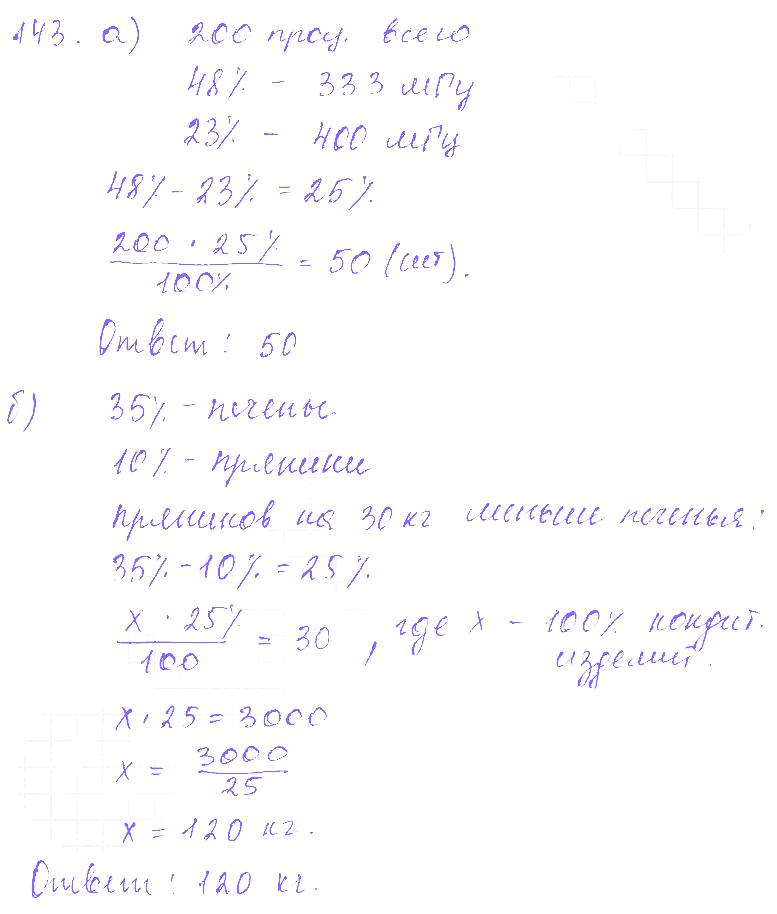 143. а) 200 проц. всего
48% - 333 мГц
23% - 400 мГц
48% - 23% = 25%
200 · 25% / 100% = 50 (шт).
Ответ: 50
б) 35% - печенье
10% - пряники
пряников на 30 кг меньше печенья:
35% - 10% = 25%
x · 25% / 100 = 30, где x - 100% кондит. изделий.
x · 25 = 3000
x = 3000 / 25
x = 120 кг.
Ответ: 120 кг.